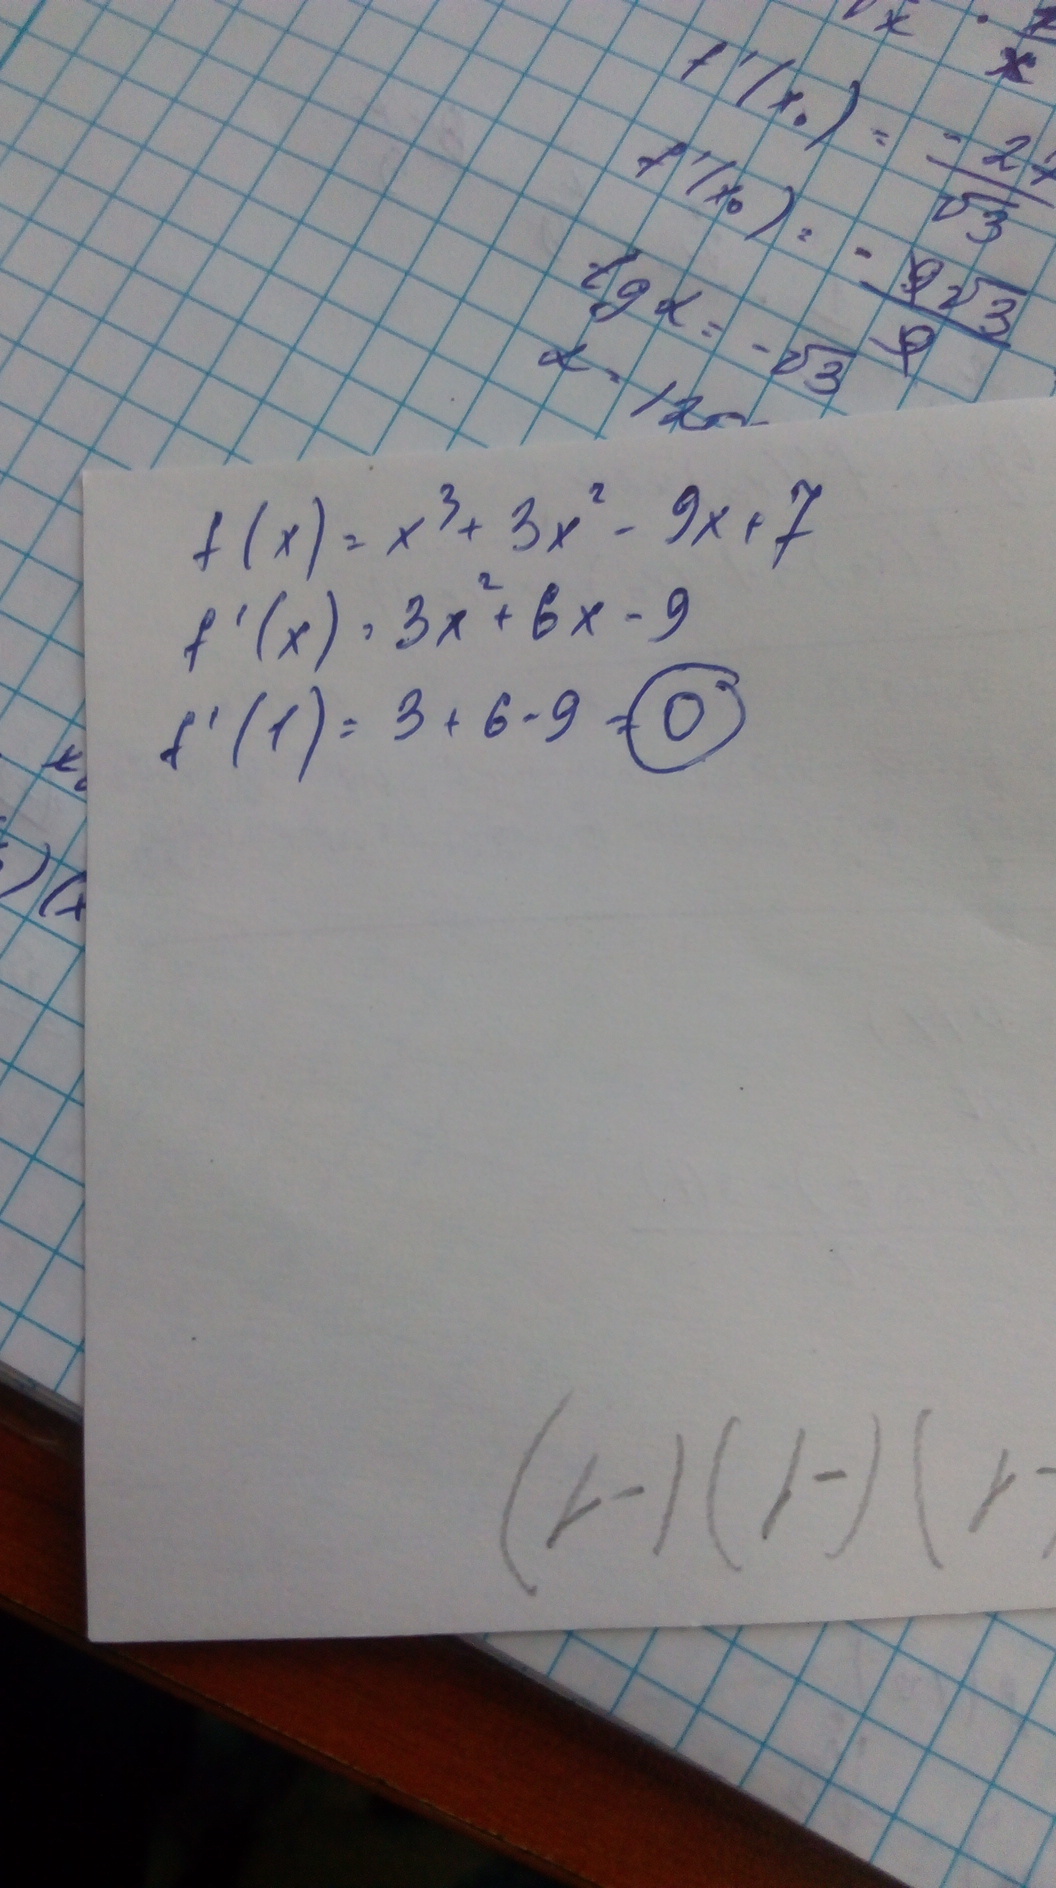 f'(x₀) = - 27
√3
f'(x₀) = - 9√3
9
tg α = -√3
f(x) = x³ + 3x² - 9x + 7
f'(x) = 3x² + 6x - 9
f'(1) = 3 + 6 - 9 = 0
(-1)(-1)(-1